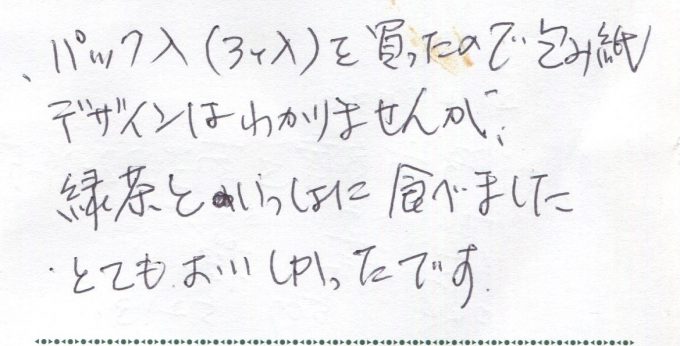 、パック入(3ヶ入)を買ったので包み紙
デザインはわかりませんが、
緑茶といっしょに食べました
・とてもおいしかったです.